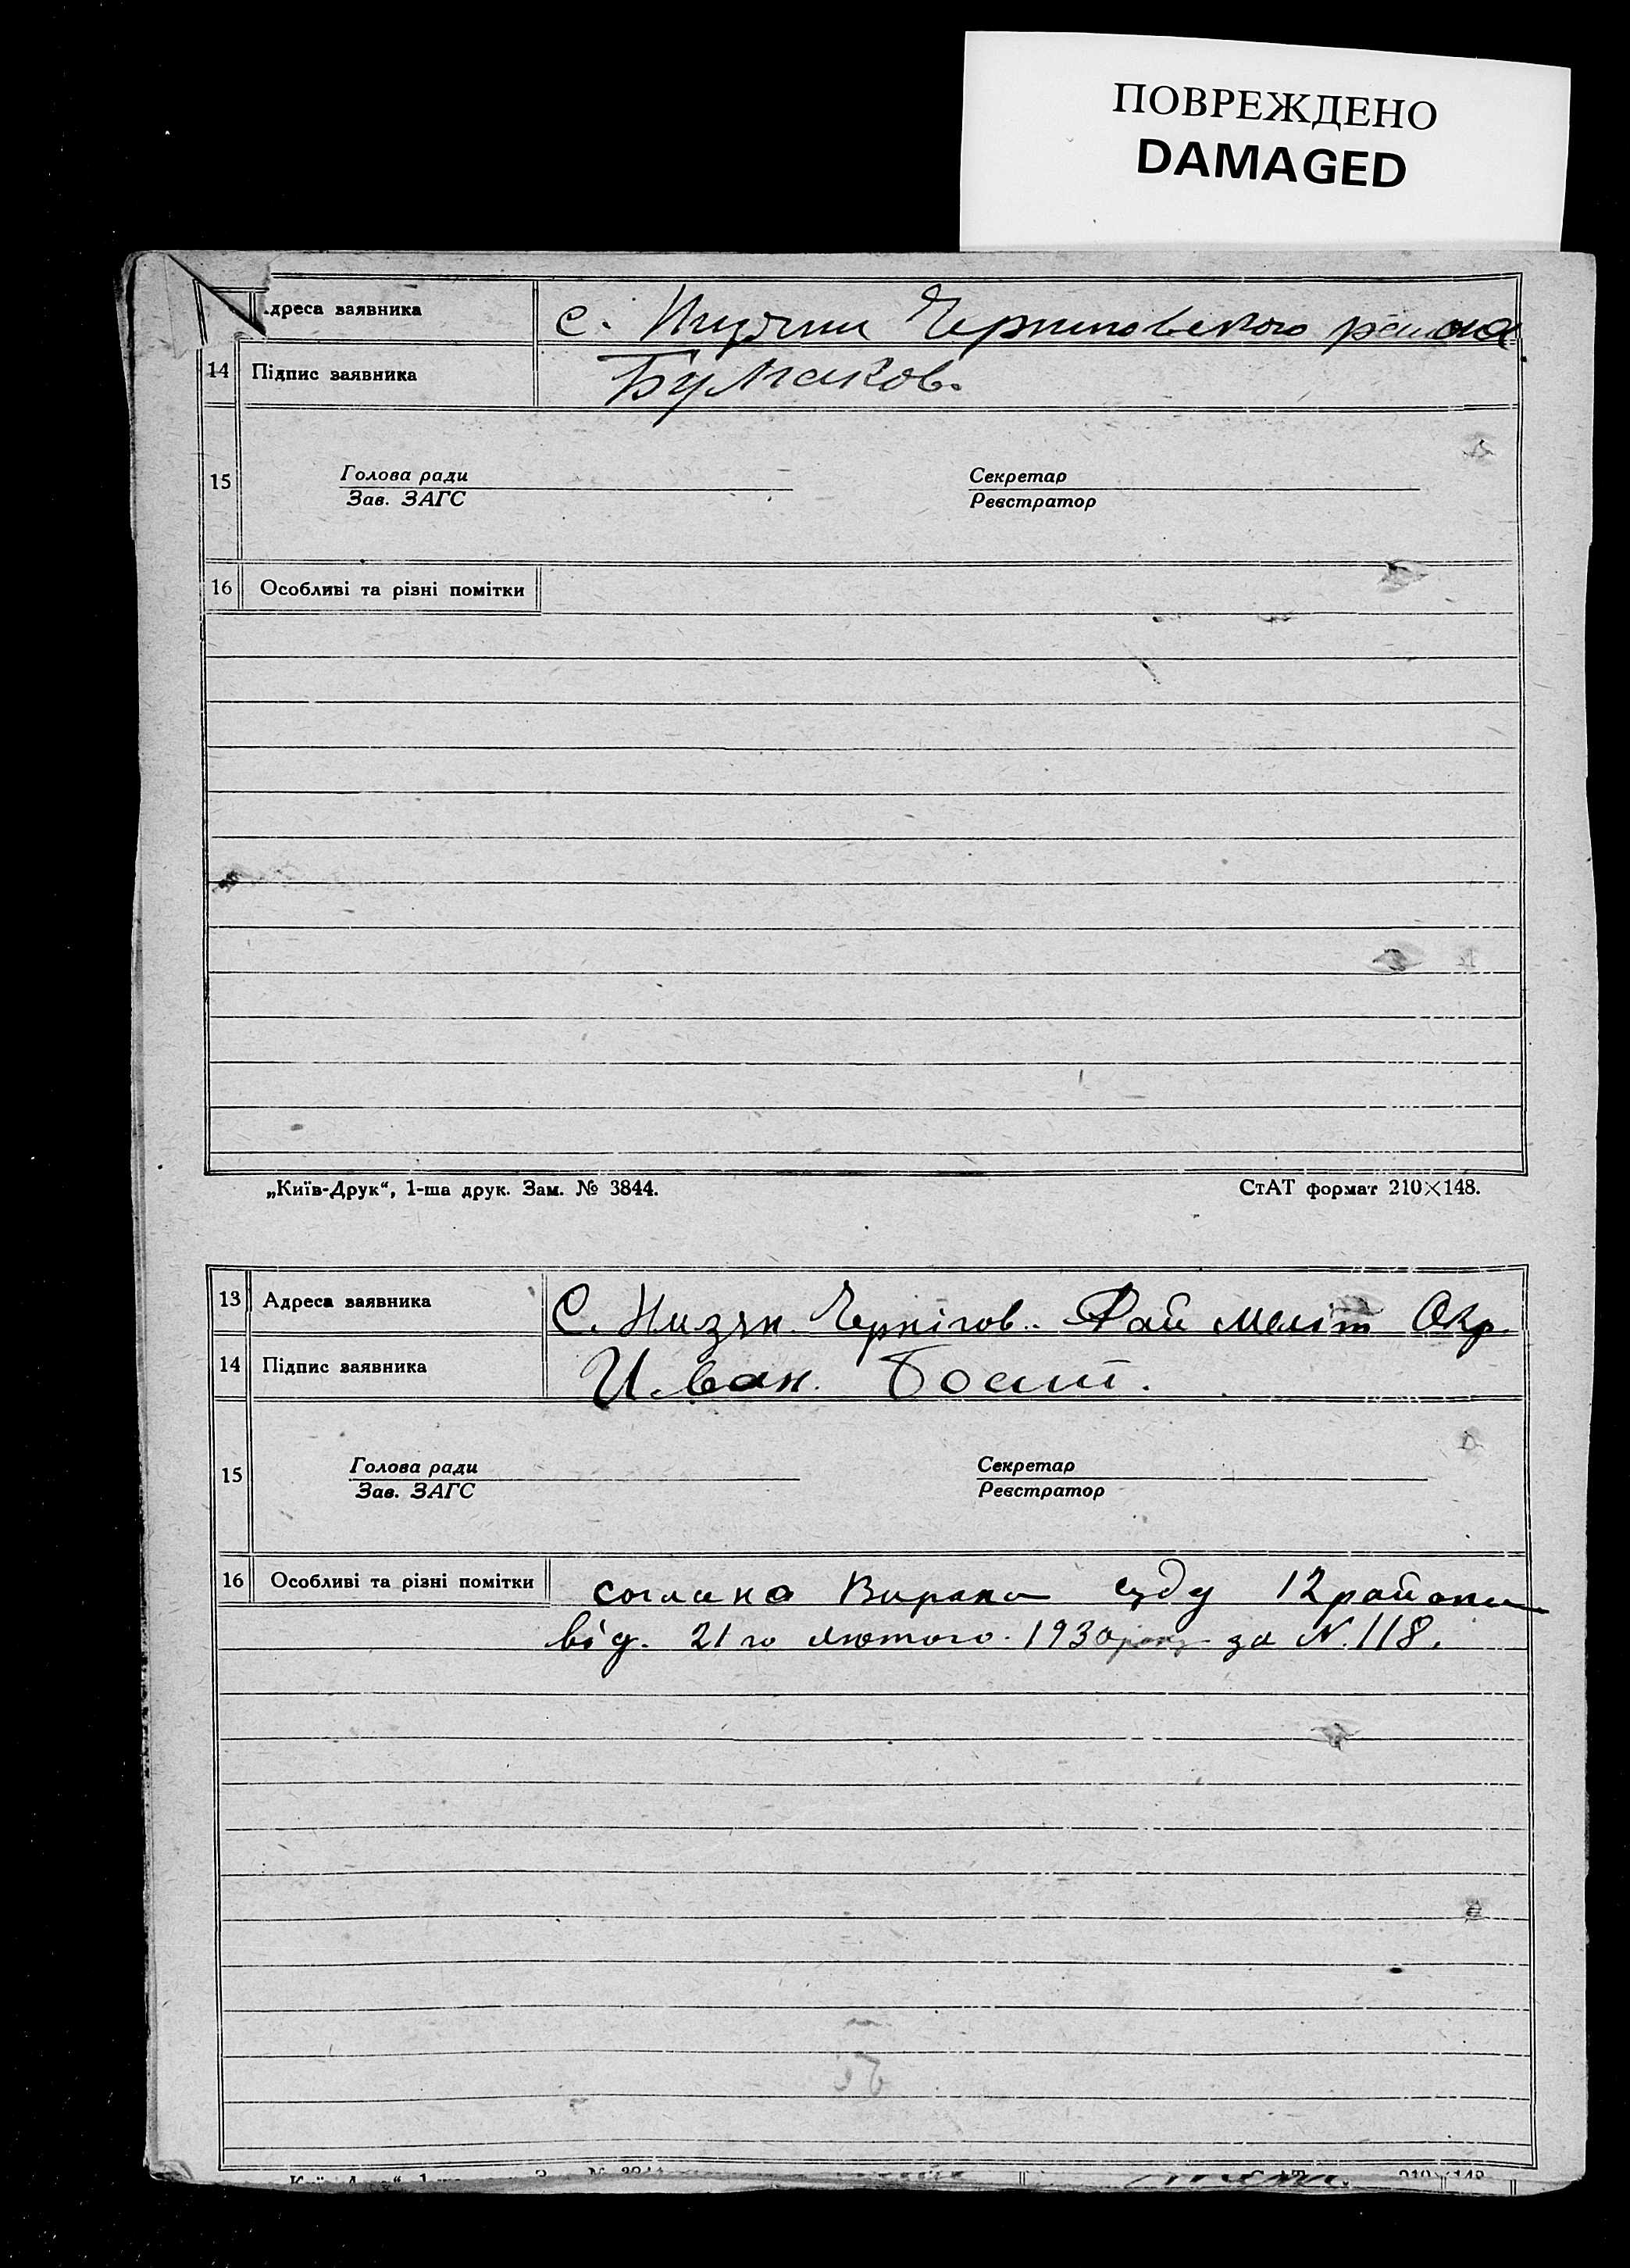 ПОВРЕЖДЕНО
DAMAGED
дреса заявника
с. Черниговского района
14 Підпис заявника
15 Голова ради Секретар
Зав. ЗАГС Реєстратор
16 Особливі та різні помітки
„Київ-Друк“, 1-ша друк. Зам. № 3844. СтАТ формат 210×148.
13 Адреса заявника С. Низян. Чернігов. Рай меліт Окр.
14 Підпис заявника Иван.
15 Голова ради Секретар
Зав. ЗАГС Реєстратор
16 Особливі та різні помітки согласно Вирака суду 12 района
від. 21го лютого. 1930 року за N. 118.